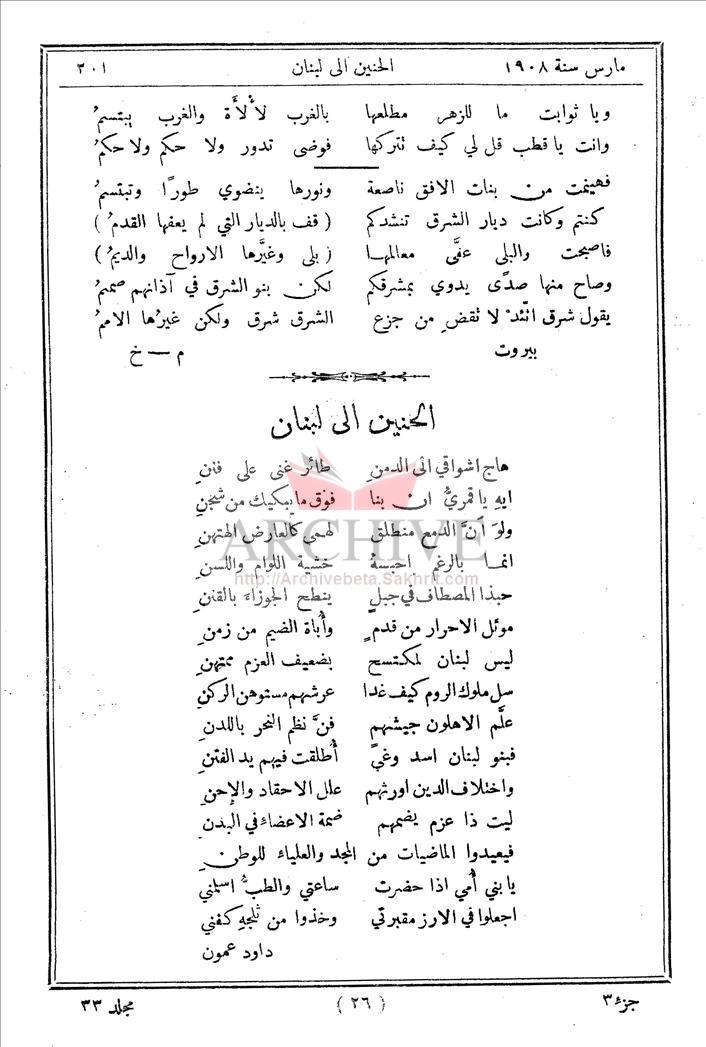 مارس سنة ١٩٠٨ الحنين الى لبنان ٣٠١
ويا ثوابت ما للزهر مطلعها بالغرب لألأة والغرب يبتسمُ
وانت يا قطب قل لي كيف تتركها فوضى تدور ولا حكم ولا حكمُ
فهينمت من بنات الافق ناصعة ونورها ينضوي طورًا وتبتسمُ
كنتم وكانت ديار الشرق تنشدكم ( قف بالديار التي لم يعفها القدمُ )
فاصبحت والبلى عفَّى معالمها ( بلى وغيَّرها الارواح والديمُ )
وصاح منها صدًى يدوي بمشرقكم لكن بنو الشرق في آذانهم صممُ
يقول شرق اتَّئد لا تقضِ من جزع الشرق شرق ولكن غيرُها الاممُ
بيروت م — خ
الحنين الى لبنان
هاج اشواقي الى الدمنِ طائر غنى على فننِ
ايهِ يا قمريُّ ان بنا فوق ما يبكيك من شجنِ
ولوَ أنَّ الدمع منطلق لهمى كالعارض الهتنِ
انما بالرغم احبسهُ خشية اللوام واللسنِ
حبذا المصطاف في جبلٍ ينطح الجوزاء بالقننِ
موئل الاحرار من قدمٍ وأُباة الضيم من زمنِ
ليس لبنان لمكتسح بضعيف العزم ممتهنِ
سل ملوك الروم كيف غدا عرشهم مستوهن الركنِ
علَّم الاهلون جيشهم فنَّ نظم النحر باللدنِ
فبنو لبنان اسد وغىً أُطلقت فيهم يد الفتنِ
واختلاف الدين اورثهم علل الاحقاد والإحنِ
ليت ذا عزم يضمهم ضمة الاعضاء في البدنِ
فيعيدوا الماضيات من المجد والعلياء للوطنِ
يا بني أمي اذا حضرت ساعتي والطبُّ اسلمني
اجعلوا في الارز مقبرتي وخذوا من ثلجهِ كفني
داود عمون
جزء ٣ ( ٢٦ ) مجلد ٣٣
ARCHIVE
http://Archivebeta.Sakhrit.com